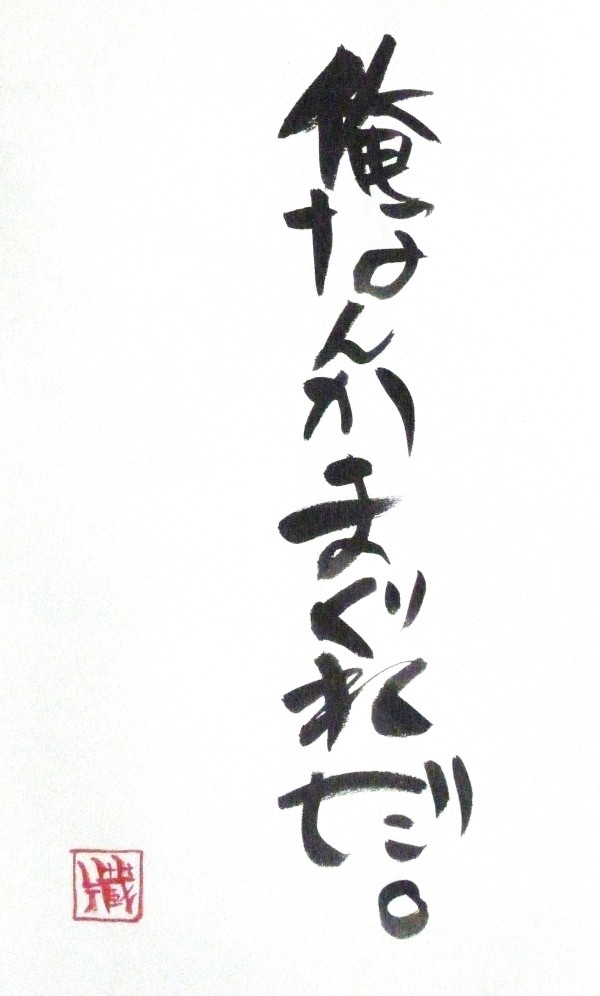 俺なんかまぐれだ。